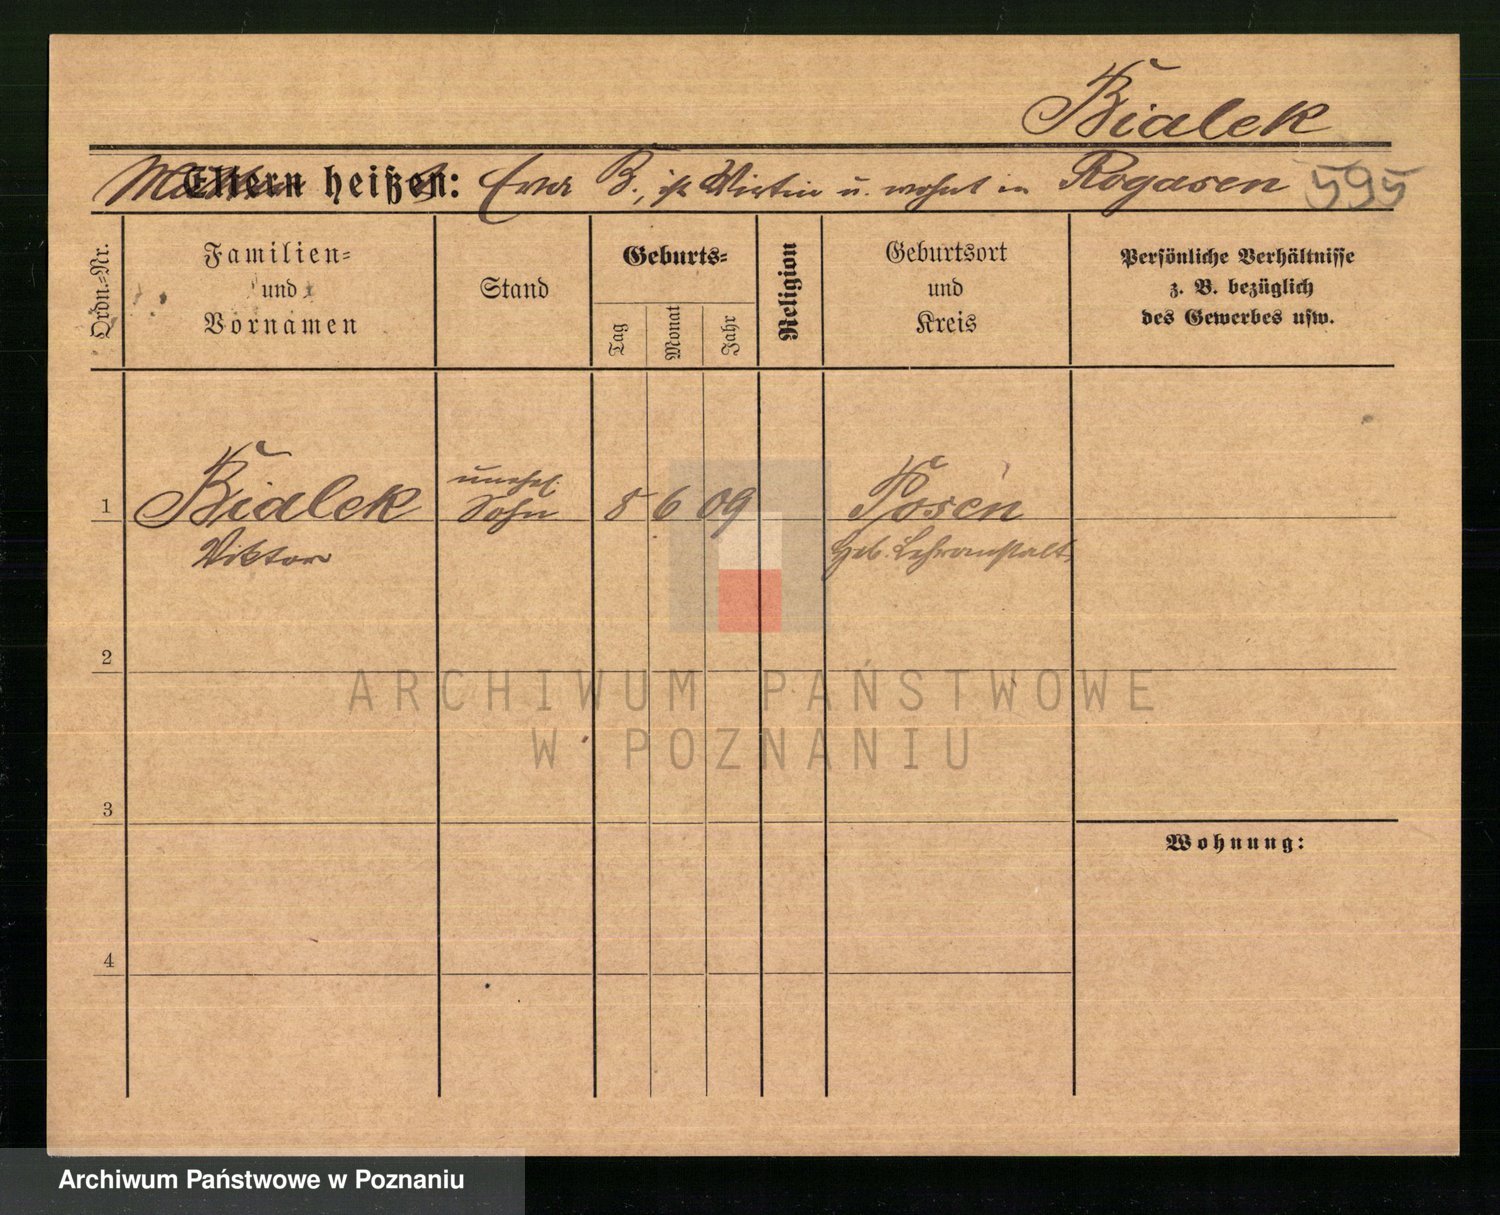 Bialek
Eltern heißen: Eva B., ist Wirtin u. wohnt in Rogasen 595
Ordn.-Nr.
Familien-
und
Vornamen
Stand
Geburts-
Tag
Monat
Jahr
Religion
Geburtsort
und
Kreis
Persönliche Verhältnisse
z. B. bezüglich
des Gewerbes usw.
1 Bialek unehel. Sohn 8 6 09 Posen
Viktor Heb. Lehranstalt
2
3
Wohnung:
4
ARCHIWUM PAŃSTWOWE
W POZNANIU
Archiwum Państwowe w Poznaniu